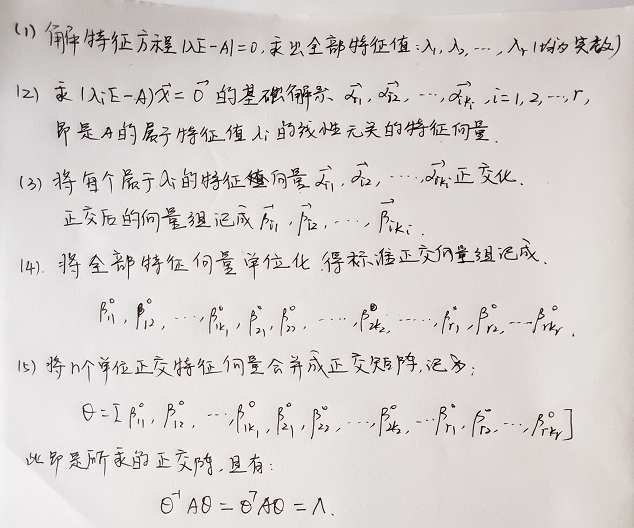 (1) 解特征方程|λE-A|=0,求出全部特征值:λ₁, λ₂, ⋯, λᵣ(均为实数)
(2) 求(λᵢE-A)x⃗=0⃗ 的基础解系 α⃗ᵢ₁, α⃗ᵢ₂, ⋯, α⃗ᵢₖᵢ, i=1, 2, ⋯, r,
即是A的属于特征值λᵢ的线性无关的特征向量.
(3) 将每个属于λᵢ的特征向量α⃗ᵢ₁, α⃗ᵢ₂, ⋯, α⃗ᵢₖᵢ正交化.
正交后的向量组记成β⃗ᵢ₁, β⃗ᵢ₂, ⋯, β⃗ᵢₖᵢ.
(4). 将全部特征向量单位化.得标准正交向量组记成.
β₁₁⁰, β₁₂⁰, ⋯, β₁ₖ₁⁰, β₂₁⁰, β₂₂⁰, ⋯, β₂ₖ₂⁰, ⋯⋯, βᵣ₁⁰, βᵣ₂⁰, ⋯βᵣₖᵣ⁰.
(5) 将n个单位正交特征向量合并成正交矩阵,记为:
θ=[β₁₁⁰, β₁₂⁰, ⋯, β₁ₖ₁⁰, β₂₁⁰, β₂₂⁰, ⋯, β₂ₖ₂⁰, ⋯βᵣ₁⁰, βᵣ₂⁰, ⋯, βᵣₖᵣ⁰]
此即是所求的正交阵,且有:
θ⁻¹Aθ=θᵀAθ=Λ.